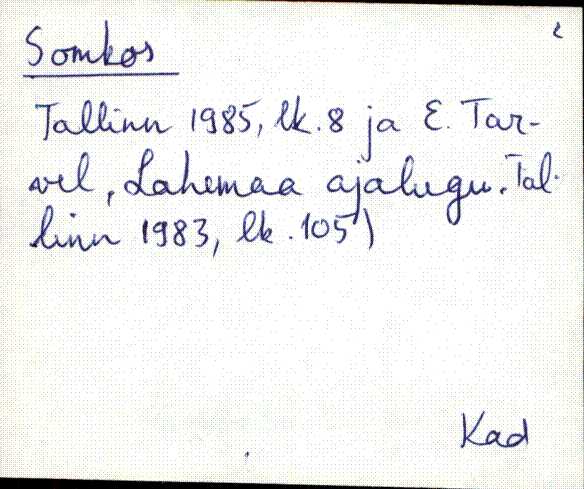 Somkos
Tallinn 1985, lk. 8 ja E. Tar-
vel, Lahemaa ajalugu. Tal-
linn 1983, lk. 105)
Kad